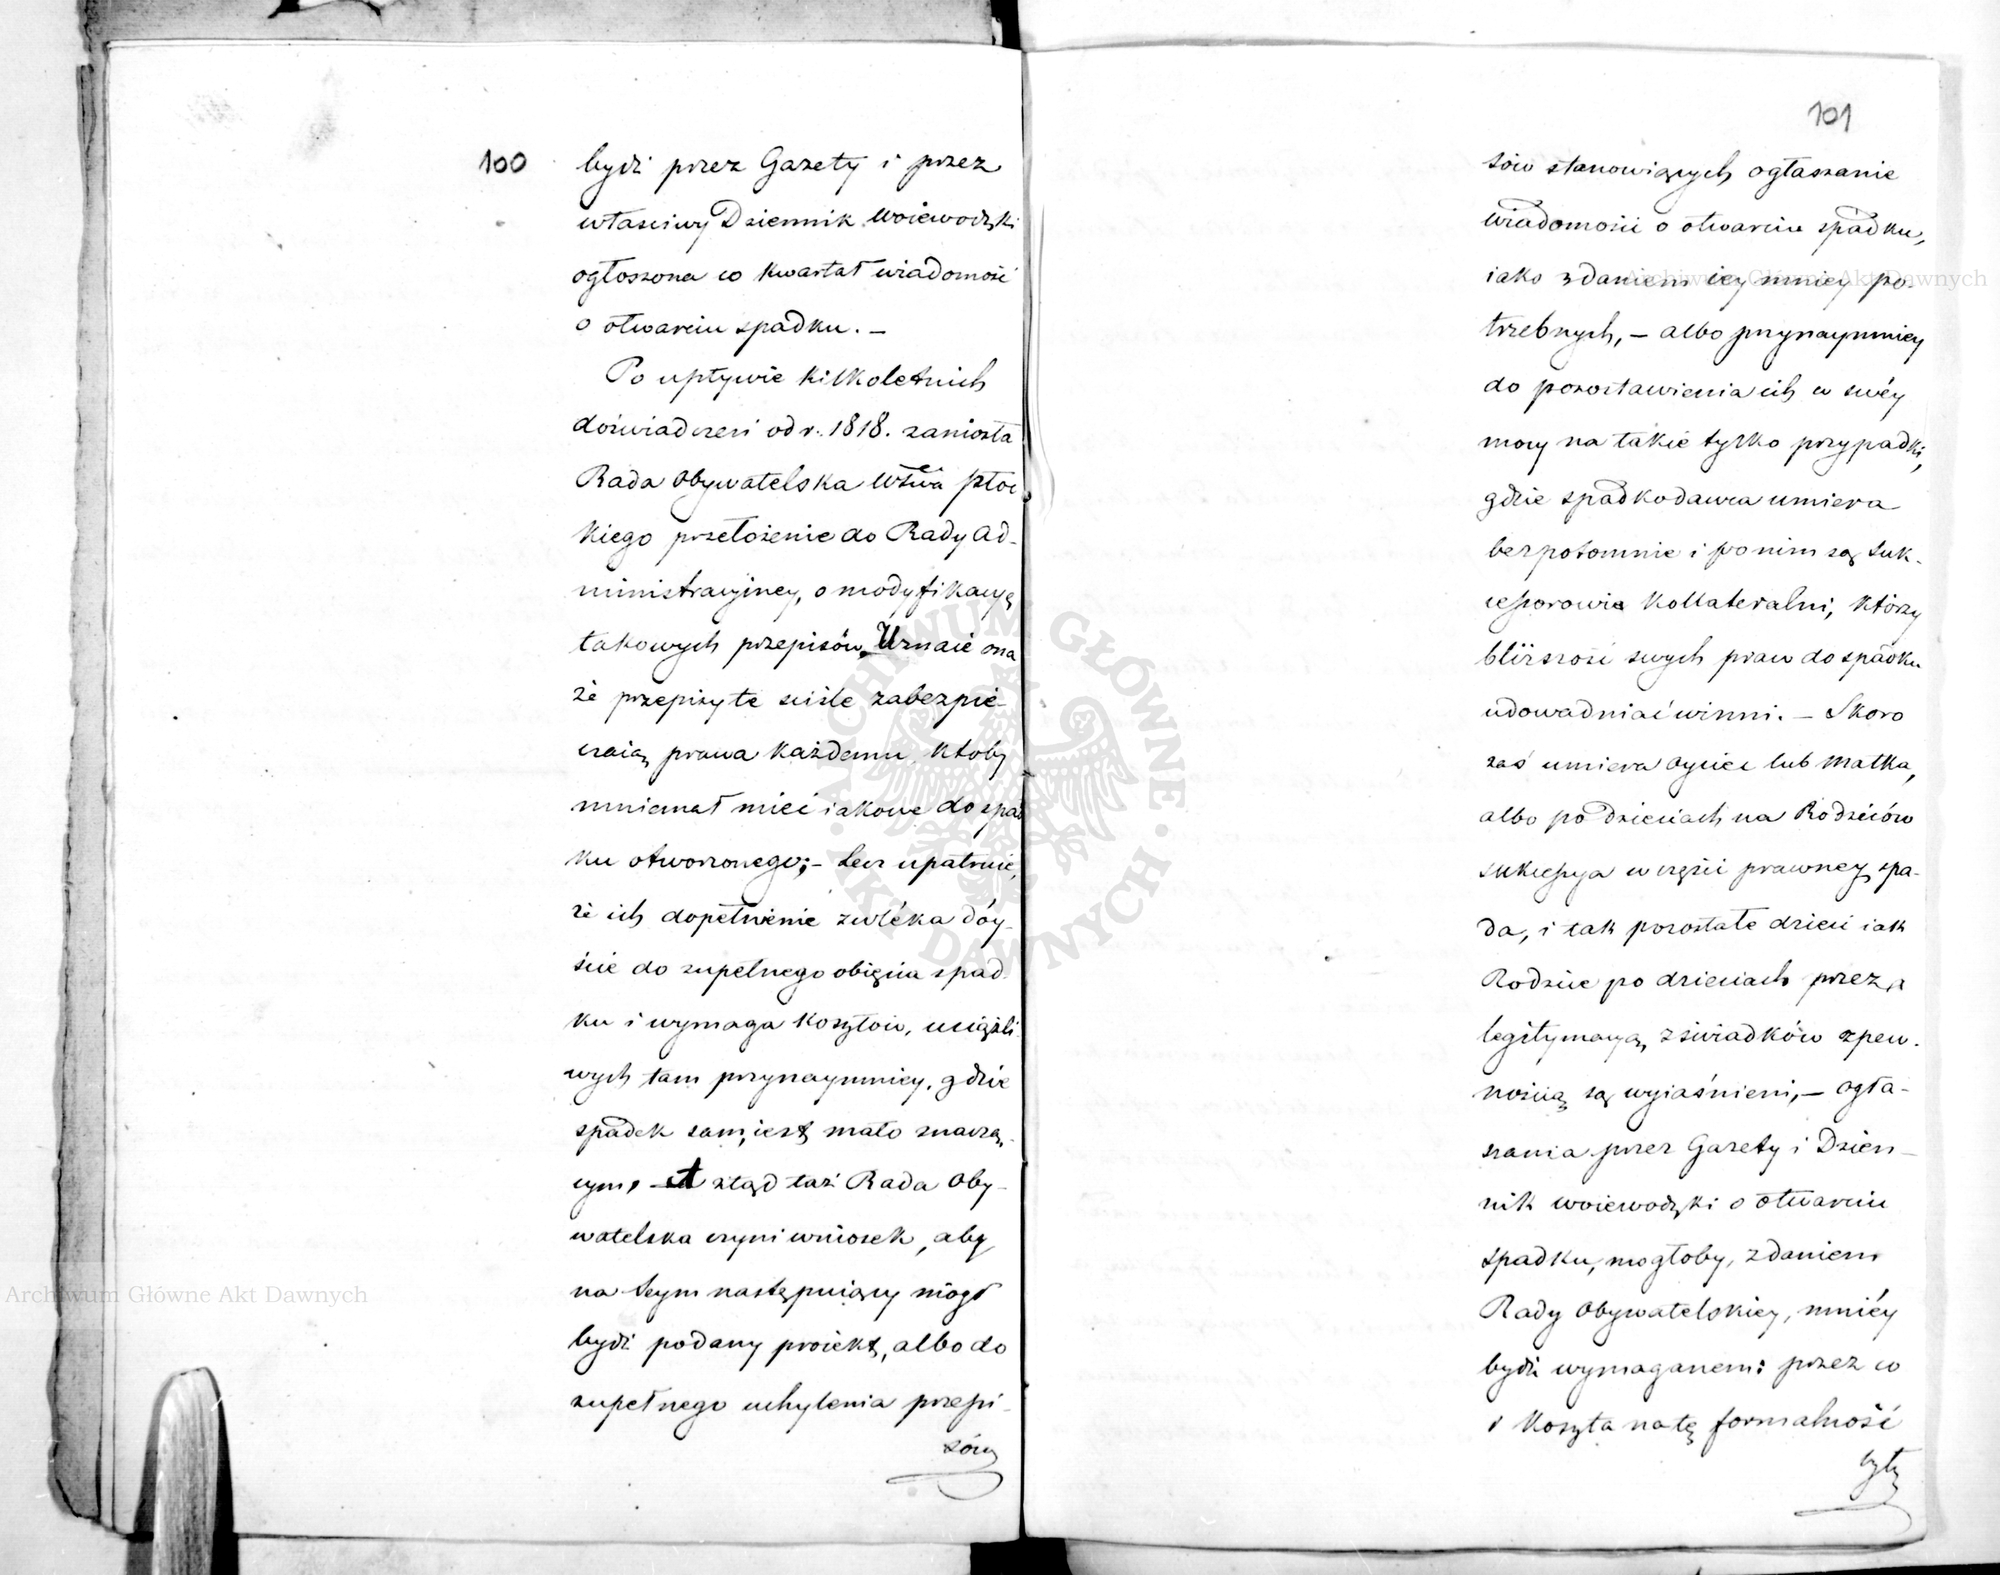 100
bydź przez Gazety i przez
własciwy Dziennik Woiewodzki
ogłoszona w kwartał wiadomość
o otwarciu spadku. —
Po upływie kilkoletnich
doświadczeń od r. 1818. zaniosła
Rada Obywatelska Wztwa płoc
kiego przełożenie do Rady Ad-
ministracyiney, o modyfikacyą
takowych przepisów. Uznaie ona
że przepisy te sciśle zabezpie-
czaią prawa każdemu, ktoby
mniemał mieć iakowe do spad
ku otworzonego; – Lecz upatruie,
że ich dopełnienie zwléka dóy-
ście do zupełnego obięcia spad
ku i wymaga kosztow, uciążli
wych tam przynaymniey, gdzie
spadek sam, iest mało znaczą-
cym, – A ztąd taż Rada Oby-
watelska czyni wniosek, aby
na Seym następuiący mógł
bydź podany proiekt, albo do
zupełnego uchylenia przepi-
sów
101
sów stanowiących ogłaszanie
wiadomości o otwarciu spadku,
iako zdaniem iey mniey po-
trzebnych, – albo przynaymniey
do pozostawienia ich w swéy
mocy na takie tylko przypadki,
gdzie spadkodawca umiera
bezpotomnie i po nim są suk-
cessorowie kollateralni, którzy
bliższość swych praw do spadku
udowadniać winni. – Skoro
zaś umiera oyciec lub matka,
albo po dzieciach na Rodziców
sukcessya w części prawney spa-
da, i tak pozostałe dzieci iak
Rodzice po dzieciach przez
legitymacyą z świadków z pew-
nością są wyiaśnieni, – ogła-
szania przez Gazety i Dzien-
nik woiewodzki o otwarciu
spadku, mogłoby, zdaniem
Rady Obywatelskiey, mniéy
bydź wymaganem: przez co
i koszta na tę formalność
łyły
Archiwum Główne Akt Dawnych
Archiwum Główne Akt Dawnych
ARCHIWUM GŁÓWNE AKT DAWNYCH